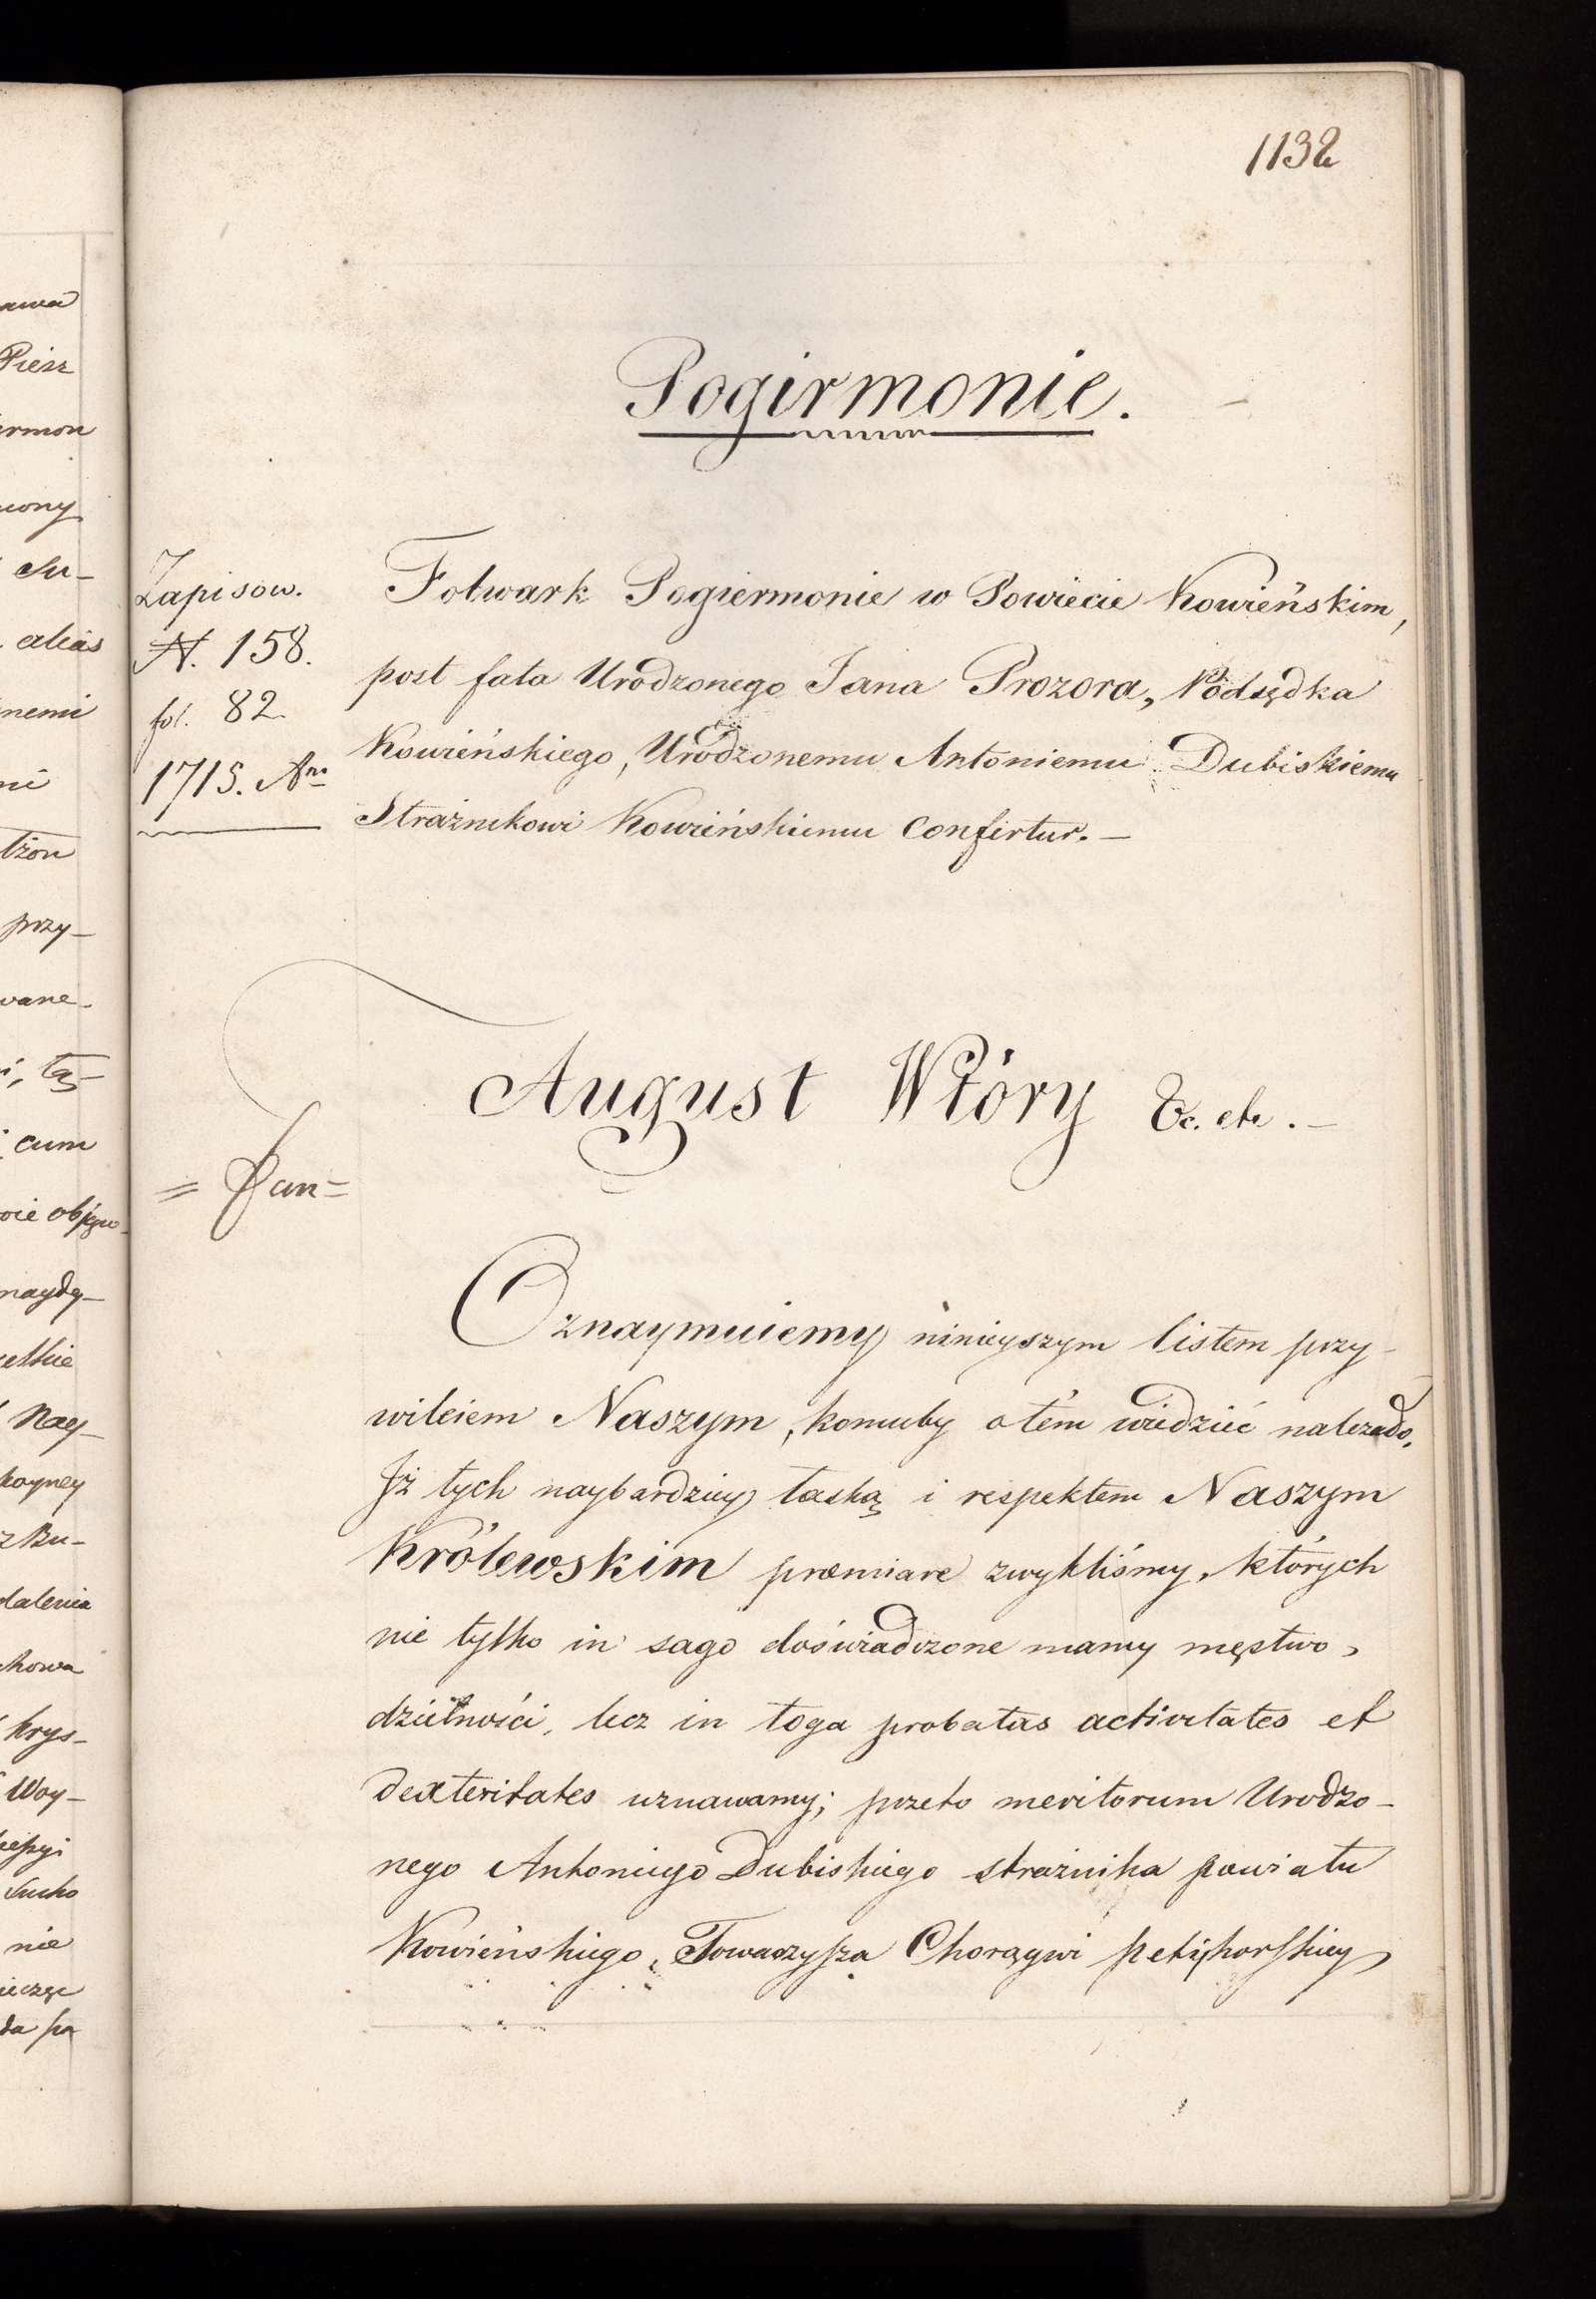 1132
Pogirmonie.
Zapisow.
N. 158.
fol. 82.
1715. Ano
Folwark Pogiermonie w Powiecie Kowieńskim,
post fata Urodzonego Jana Prozora, Podsędka
Kowieńskiego, Urodzonemu Antoniemu Dubiskiemu
Strażnikowi Kowieńskiemu Confertur. —
August Wtóry &c. etc. —
Oznaymuiemy ninieyszym listem przy-
wileiem Naszym, komuby o tém wiedzieć należało,
Iż tych naybardziey łaską i respektem Naszym
Królewskim præmiare zwykliśmy, których
nie tylko in sago doświadczone mamy męstwo,
dzielności, lecz in toga probatas activitates et
dexteritates uznawamy; przeto meritorum Urodzo-
nego Antoniego Dubiskiego strażnika powiatu
Kowieńskiego, Towarzysza Chorągwi petyhorskiey
awa
Pierz
ermon
iony
Su-
alias
nemi
ni
tżon
przy-
wane-
cum
naydą-
Nay-
koyney
z Bu-
dalenia
chowa
krys-
Woy-
nie